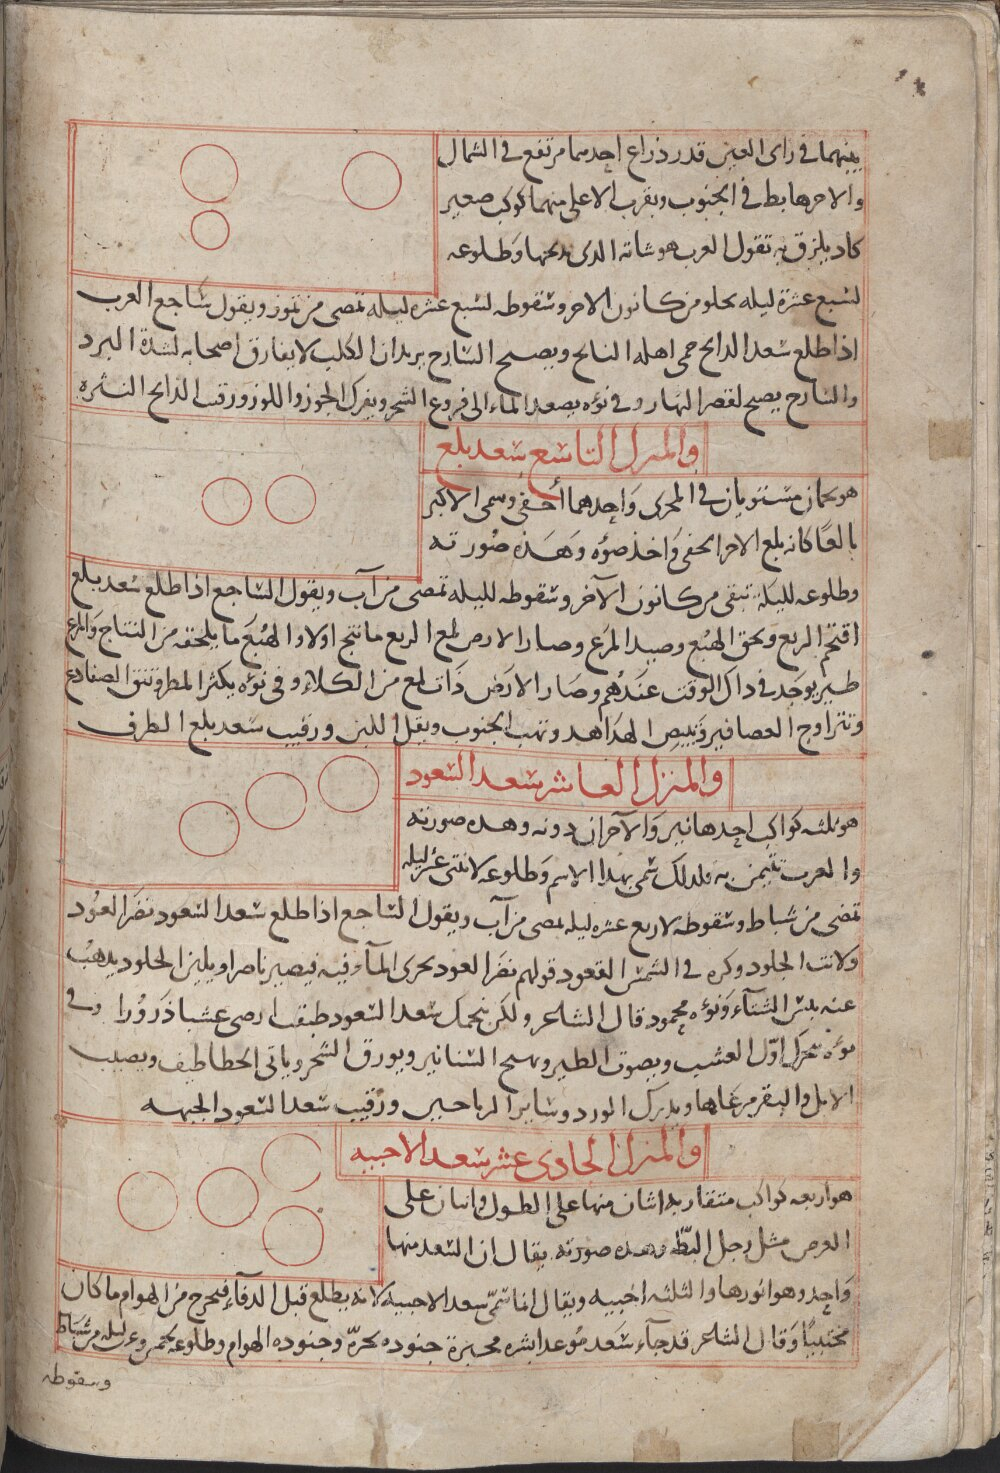 بينهما في راى العين قدر ذراع احدهما مرتفع في الشمال
والاخر هابط في الجنوب وبقرب الاعلى منهما كوكب صغير
كاد يلزق به تقول العرب هو شاته الذى يذبحها وطلوعه
لسبع عشرة ليله يخلو من كانون الاخر وسقوطه لسبع عشره ليله تمضى من تموز ويقول ساجع العرب
اذا طلع سعد الذابح حمى اهله النابح ويصبح السارح يريد ان الكلب لا يفارق اصحابه لشدة البرد
والسارح يصبح لقصر النهار وفي نوءه يصعد الماء الى فروع الشجر ويفرك الجوز واللوز ورقيب الذابح النثره
والمنزل التاسع سعد بلع
هو نجمان مستويان في المجرى واحدهما أخفى وسمى الاكبر
بالعًا كانه بلع الاخر الخفى واخذ ضوءه وهذه صورته
وطلوعه لليلة تبقى من كانون الآخر وسقوطه لليله تمضى من آب ويقول الساجع اذا طلع سعد بلع
اقتحم الربع ولحق الهبع وصيد المرع وصار الارض لمع الربع ما نتج اولا والهبع ما يلحقه من النتاج والمرع
طير يوجد في ذاك الوقت عندهم وصار الارض ذات لمع من الكلاء وفي نوءه يكثر المطر وتنق الضفادع
وتتزاوج العصافير وتبيض الهداهد وتهب الجنوب ويقل اللبن ورقيب سعد بلع الطرف
والمنزل العاشر سعد السعود
هو ثلثه كواكب احدها نير والآخران دونه وهذه صورته
والعرب تتيمن به فلذلك سمى بهذا الاسم وطلوعه لاثنتى عشر ليله
تمضى من شباط وسقوطه لاربع عشره ليله تمضى من آب ويقول الساجع اذا طلع سعد السعود نضر العود
ولانت الجلود وكره في الشمس القعود قولهم نضر العود يجرى المآء فيه فيصير ناضرا ويلين الجلود يذهب
عنه يبس الشتآء ونوءه محمود قال الشاعر ولكن بنجمك سعد السعود طبقت ارضى عشبا ذرورا وفي
نوءه يتحرك اول العشب ويصوت الطير وتهيج السنانير ويورق الشجر وياتى الخطاطيف ويصيب
الابل والبقر مرعاها ويدرك الورد وساير الرياحين ورقيب سعد السعود الجبهه
والمنزل الحادى عشر سعد الاخبيه
هو اربعه كواكب متقاربه اثنان منها على الطول واثنان على
العرض مثل رجل البطّه وهذه صورته يقال ان السعد منها
واحد وهو انورها والثلثه اخبيه ويقال انما سمّى سعد الاخبيه لانه يطلع قبل الدفآء فيخرج من الهوام ما كان
مختبيًا وقال الشاعر قد جآء سعد موعدا بشره مخبرة جنوده بحرّه وجنوده الهوام وطلوعه لخمس وعشرين ليله من شباط
وسقوطه